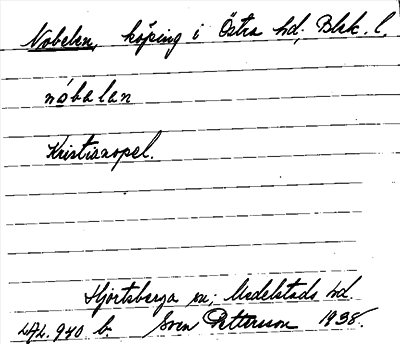 Nobelen, köping i Östra hd; Blek. l.
nóbalan
Kristianopel.
Hjortsberga sn; Medelstads hd.
LAL. 940 b. Sven Pettersson 1938.